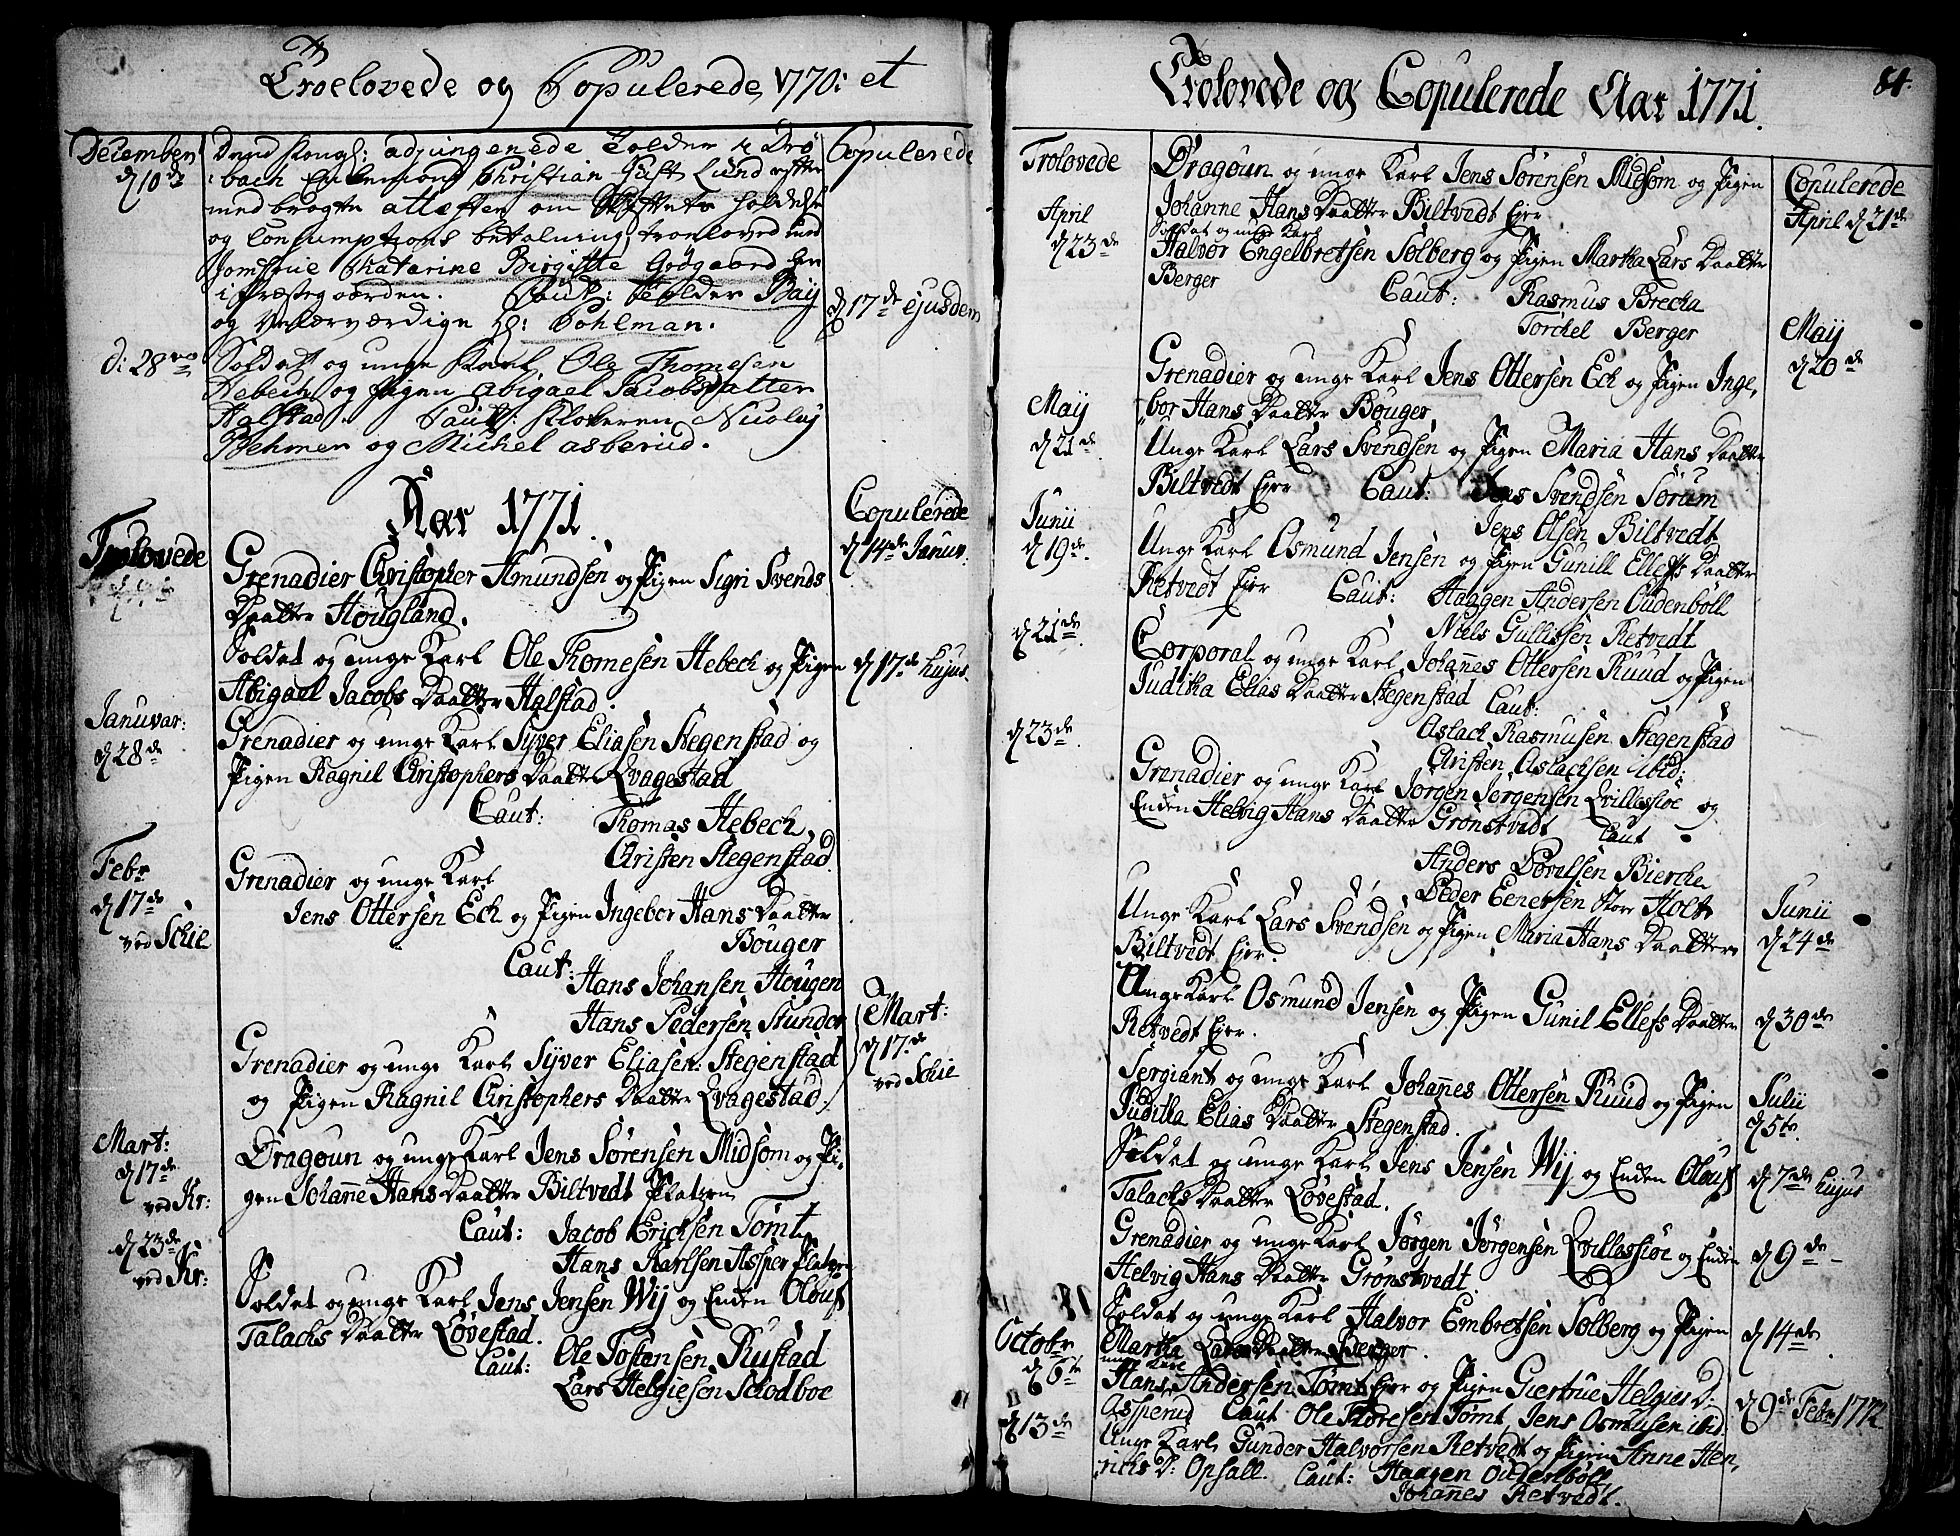 Troelovede og Copulerede 1770: et
December
d 10de
adjungerede Tolder i Drø
bach Enkemand Christian Gust Lund efter
med bragte attester om Skiftets holdelse
og Consumptions betalning, troeloved med
Jomfrue Chatarine Birgitte Gøgaard her
i Præstegaarden. Caut: Tolder Baÿ
og Velærværdige Hr: Pohlman.
Copulerede
d 17de ejusdem
d: 28
Soldat og unge Karl, Ole Thomesen
Hebech og Pigen Abigael Jacobsdatter
Halstad. Caut: Klokeren Nicolaÿ
Behmen og Michel asberud.
Aar 1771.
Trolovede
Copulerede
d 14de Januv.
Grenadier Christopher Amundsen og Pigen Sigri Svends
Daatter Hougland.
Soldat og unge Karl Ole Thomesen Hebech og Pigen
d 17de hujus.
Abigael Jacobs Daatter Halstad.
Januvar:
d 28de
Grenadier og unge Karl Syver Eliasen Stegenstad og
Pigen Ragnil Christophers Daatter Qvagestad
Caut: Thomas Hebech,
Christen Stegenstad.
Febr
d 17de
ved Schie
Grenadier og unge Karl
Jens Ottersen Ech og Pigen Ingebor Hans Daatter
Bouger
Caut: Hans Johansen Hougen
Hans Pedersen Stunder
Grenadier og unge Karl Syver Eliasen: Stegenstad
og Pigen Ragnil Christophers Daatter Qvagestad
Mart:
d 17de
ved Schie
Mart:
d 17de
ved Kr:
Dragoun og unge Karl Jens Sørensen Midsom og Pi-
gen Johanne Hans Daatter Biltvedt Platzen
Caut: Jacob Erichsen Tømt
Hans Karlsen Asper Platzen
d 23de
ved Kr:
Soldat og unge Karl Jens Jensen Wij og Enken Olouff
Talachs Daatter Løvestad.
Caut: Ole Tostensen Rustad
Lars Helgiesen Schodboe
Trolovede og Copulerede Aar 1771.
84.
Trolovede
Dragoun og unge Karl Jens Sørensen Midsom og Pigen
Johanne Hans Daatter Biltvedt Eier
Copulerede
April d 21de
April
d 23de
Soldat og unge Karl
Halvor Engelbretsen Solberg og Pigen Martha Lars Daatter
Berger
Caut: Rasmus Brecka
Torchel Berger
Maij
d 20de
Grenadier og unge Karl Jens Ottersen Ech og Pigen Inge,
bor Hans Daatter Bouger,
Maij
d 21de
Unge Karl Lars Svendsen og Pigen Maria Hans Daatter
Biltvedt Eier Caut: Jens Svendsen Sorum
Jens Olsen Biltvedt
Junii
d 19de.
Unge Karl Osmund Jensen og Pigen Gunill Ellefs Daatter
Retvedt Eier Caut: Haagen Andersen Oudenböll
Niels Gullissen Retvedt
d 21de.
Corporal og unge Karl Johannes Ottersen Ruud og Pigen
Juditha Elias Daatter Stegenstad Caut:
Aslach Rasmusen Stegenstad
Christen Aslachsen ibid:
d 23de.
Grenadier og unge Karl Jørgen Jørgensen Qvillessiøe og
Enken Helvig Hans Daatter Grønstvedt Caut
Anders Povelsen Bierche
Peder Eenersen Store Holt
Unge Karl Lars Svendsen og Pigen Maria Hans Daatter
Biltvedt Eier.
Junii
d 24de
Unge Karl Osmund Jensen og Pigen Gunil Ellefs Daatter
Retvedt Eier.
d 30de
Sergiant og unge Karl Johannes Ottersen Ruud og Pigen
Juditha Elias Daatter Stegenstad.
Julii
d 5te.
Soldat og unge Karl Jens Jensen Wij og Enken Olouff
Talachs Daatter Løvestad.
d 7de hujus
Grenadier og unge Karl Jørgen Jørgensen Qvillessiøe og Enken
Helvig Hans Daatter Grønstvedt.
d 9de
Soldat og unge Karl Halvor Embretsen Solberg og Pigen
Martha Lars Daatter Berger.
d 14de
Octobr
d 6te
unge Karl
Hans Andersen Tømt Eier og Pigen Giertrue Helgies D:
Asperud Caut Ole Thoresen Tømt, Jens Osmusen ibid.
d 9de Febr 1772
d 13de
Unge Karl Gunder Halvorsen Retvedt og Pigen Anne Hen,
richs D: Opsall. Caut: Haagen Oudenböll,
Johannes Retvedt.